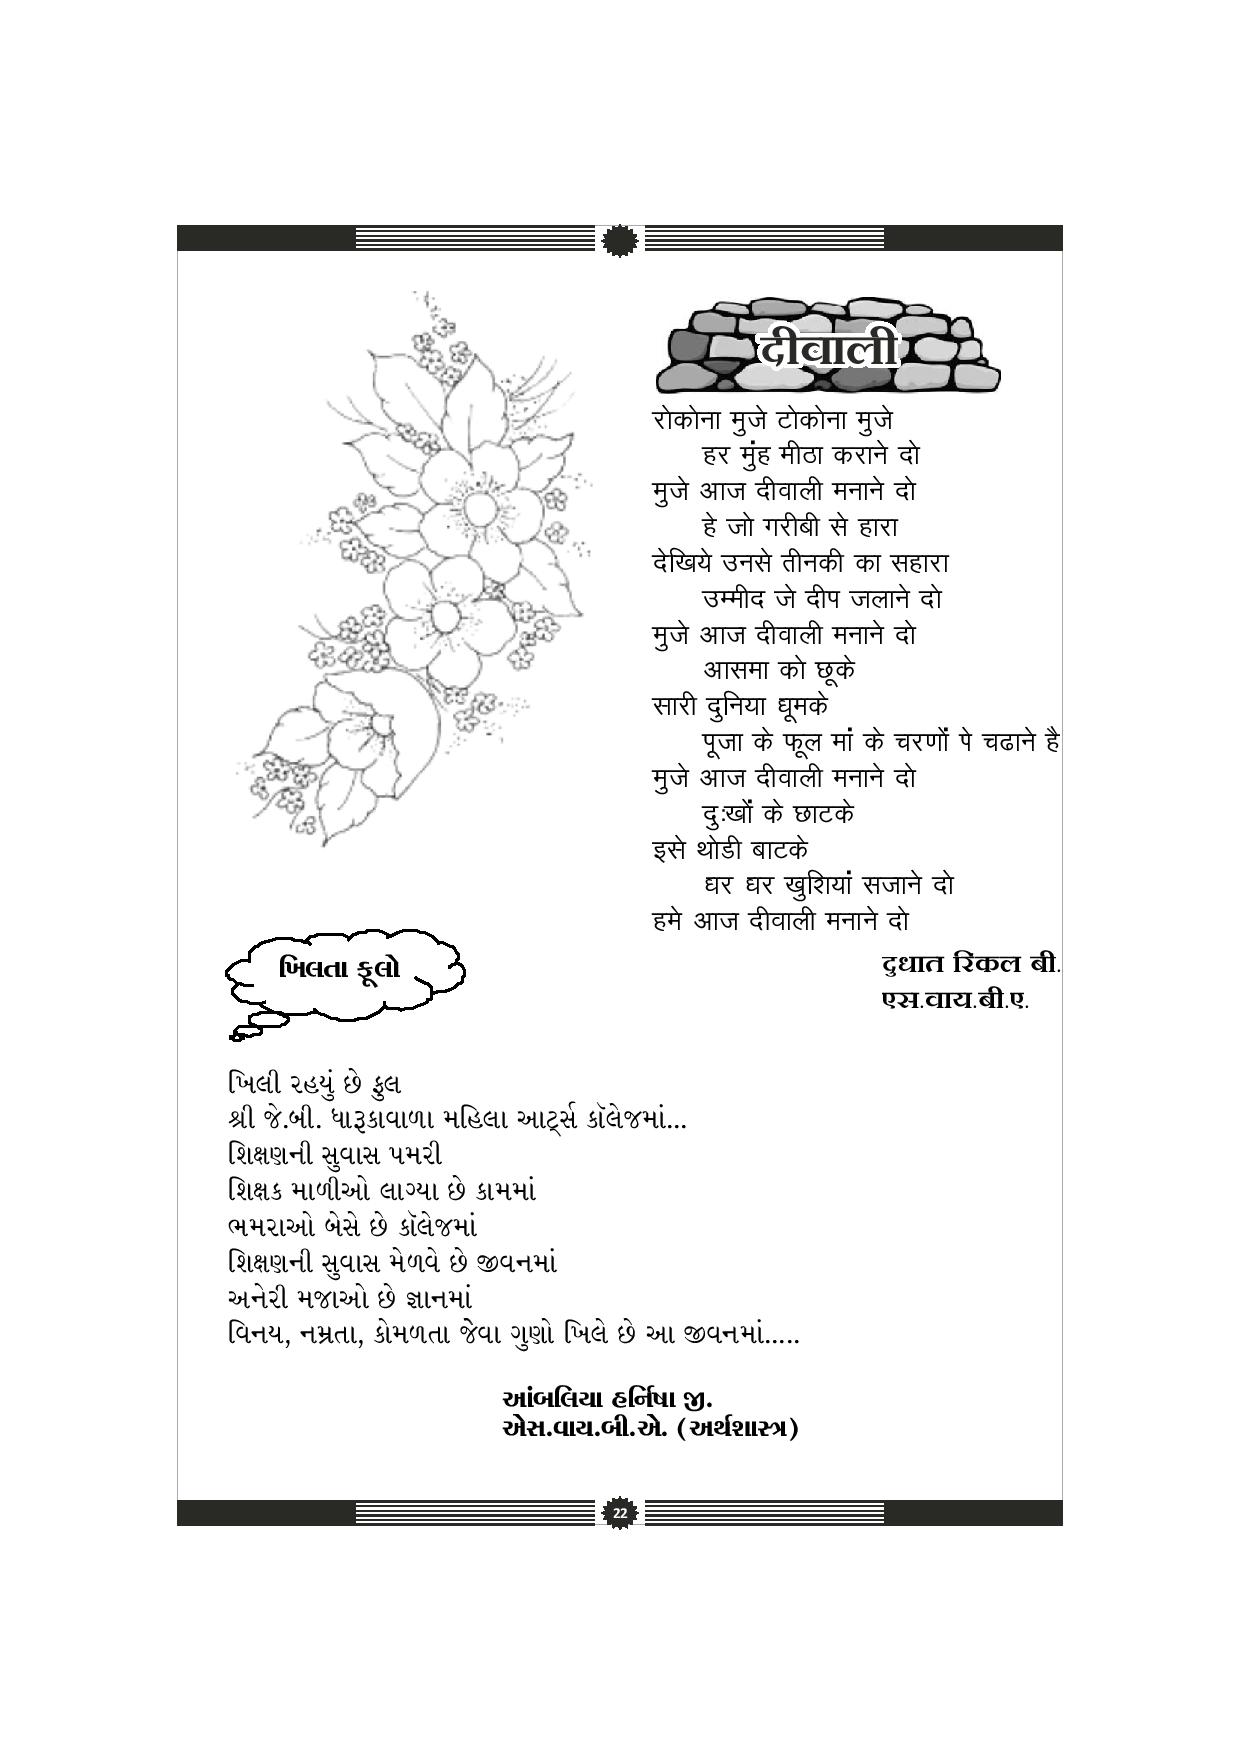 दीवाली
रोकोना मुजे टोकोना मुजे
हर मुंह मीठा कराने दो
मुजे आज दीवाली मनाने दो
हे जो गरीबी से हारा
देखिये उनसे तीनकी का सहारा
उम्मीद जे दीप जलाने दो
मुजे आज दीवाली मनाने दो
आसमा को छूके
सारी दुनिया घूमके
पूजा के फूल मां के चरणों पे चढाने है
मुजे आज दीवाली मनाने दो
दुःखों के छाटके
इसे थोडी बाटके
घर घर खुशियां सजाने दो
हमे आज दीवाली मनाने दो
दुधात रिंकल बी.
एस.वाय.बी.ए.
ખિલતા ફૂલો
ખિલી રહયું છે ફુલ
શ્રી જે.બી. ધારૂકાવાળા મહિલા આર્ટ્સ કૉલેજમાં...
શિક્ષણની સુવાસ પમરી
શિક્ષક માળીઓ લાગ્યા છે કામમાં
ભમરાઓ બેસે છે કૉલેજમાં
શિક્ષણની સુવાસ મેળવે છે જીવનમાં
અનેરી મજાઓ છે જ્ઞાનમાં
વિનય, નમ્રતા, કોમળતા જેવા ગુણો ખિલે છે આ જીવનમાં.....
આંબલિયા હર્નિષા જી.
એસ.વાય.બી.એ. (અર્થશાસ્ત્ર)
22